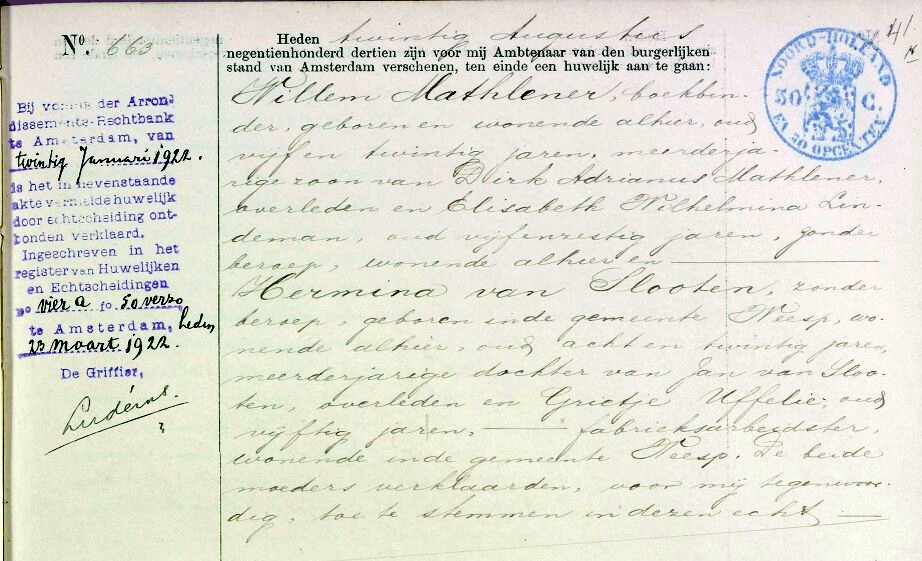 Nº. 663
Heden twintig Augustus
negentienhonderd dertien zijn voor mij Ambtenaar van den burgerlijken
stand van Amsterdam verschenen, ten einde een huwelijk aan te gaan:
Willem Mathlener, boekbin-
der, geboren en wonende alhier, oud
vijf en twintig jaren, meerderja-
rige zoon van Dirk Adrianus Mathlener,
overleden en Elisabeth Wilhelmina Lin-
deman, oud vijfenzestig jaren, zonder
beroep, wonende alhier en
Hermina van Slooten, zonder
beroep, geboren in de gemeente Weesp, wo-
nende alhier, oud acht en twintig jaren,
meerderjarige dochter van Jan van Sloo-
ten, overleden en Grietje Uffelie, oud
vijftig jaren, fabrieksarbeidster,
wonende in de gemeente Weesp. De beide
moeders verklaarden, voor mij tegenwoor-
dig, toe te stemmen in dezen echt
Bij vonnis der Arrond
dissements-Rechtbank
te Amsterdam, van
twintig Januari 1922.
is het in nevenstaande
akte vermelde huwelijk
door echtscheiding ont-
bonden verklaard.
Ingeschreven in het
register van Huwelijken
en Echtscheidingen
no vier a fo 50 verso
te Amsterdam, heden
23 maart 1922.
De Griffier,
NOORD-HOLLAND
50 C.
EN 50 OPCENTEN
41